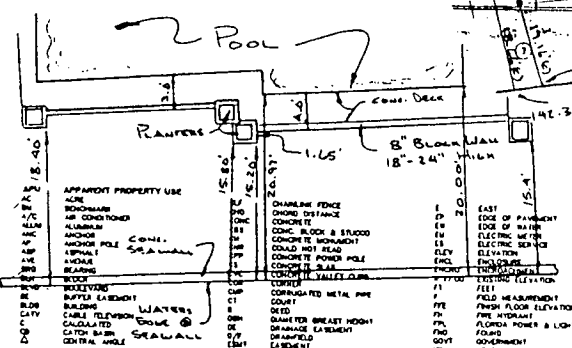 POOL
CONC. DECK
PLANTERS
3.0'
4.0'
1.65'
8" BLOCK WALL
18"-24" HIGH
142.3
18.40'
15.80'
15.20'
20.97'
20.00'
15.4'
CONC.
SEAWALL
WATERS
EDGE @
SEAWALL
APPARENT PROPERTY USE
AC ACRE
BM BENCHMARK
A/C AIR CONDITIONER
ALUM ALUMINUM
ANC ANCHOR
AP ANCHOR POLE
ASP ASPHALT
AVE AVENUE
BRG BEARING
BLOCK
BLVD BOULEVARD
BE BUFFER EASEMENT
BLDG BUILDING
CATV CABLE TELEVISION
C CALCULATED
CB CATCH BASIN
Δ CENTRAL ANGLE
CHAINLINK FENCE
CHD CHORD DISTANCE
CONC CONCRETE
CONC. BLOCK & STUCCO
CM CONCRETE MONUMENT
CNR COULD NOT READ
CPP CONCRETE POWER POLE
CONCRETE SLAB
CONCRETE VALLEY CURB
COR CORNER
CMP CORRUGATED METAL PIPE
CT COURT
D DEED
DBH DIAMETER BREAST HEIGHT
DE DRAINAGE EASEMENT
D/F DRAINFIELD
ESMT EASEMENT
E EAST
EP EDGE OF PAVEMENT
EW EDGE OF WATER
EM ELECTRIC METER
ES ELECTRIC SERVICE
ELEV ELEVATION
ENCL ENCLOSURE
ENCRO ENCROACHMENT
EXISTING ELEVATION
FT FEET
F FIELD MEASUREMENT
FFE FINISH FLOOR ELEVATION
FH FIRE HYDRANT
FPL FLORIDA POWER & LIGH
FND FOUND
GOVT GOVERNMENT